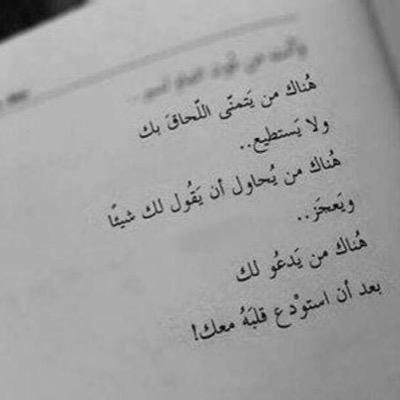 هُناك من يَتمنّى اللّحاقَ بك
ولا يَستطيع..
هُناك من يُحاول أن يَقُول لك شيئًا
ويَعجَز..
هُناك من يَدعُو لك
بعد أن استوْدع قلبَهُ معك!